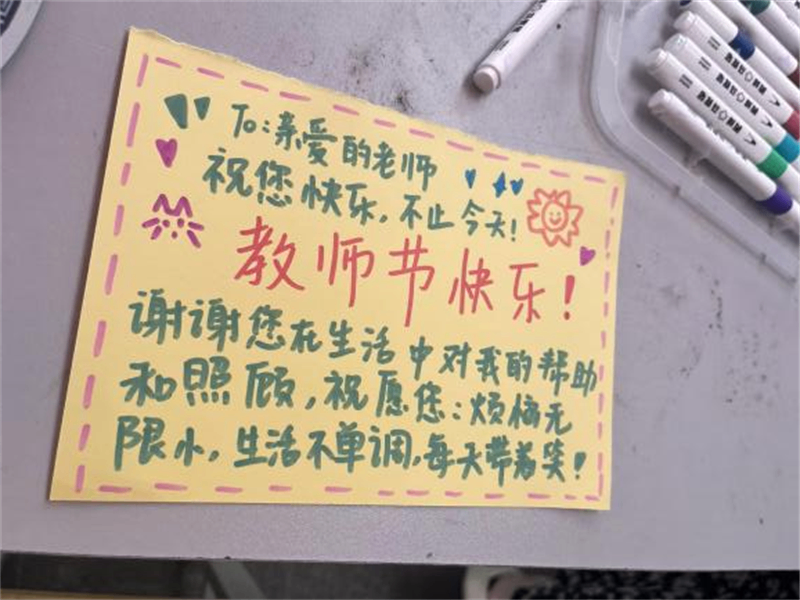 To:亲爱的老师
祝您快乐,不止今天!
教师节快乐!
谢谢您在生活中对我的帮助
和照顾,祝愿您:烦恼无
限小,生活不单调,每天带着笑!